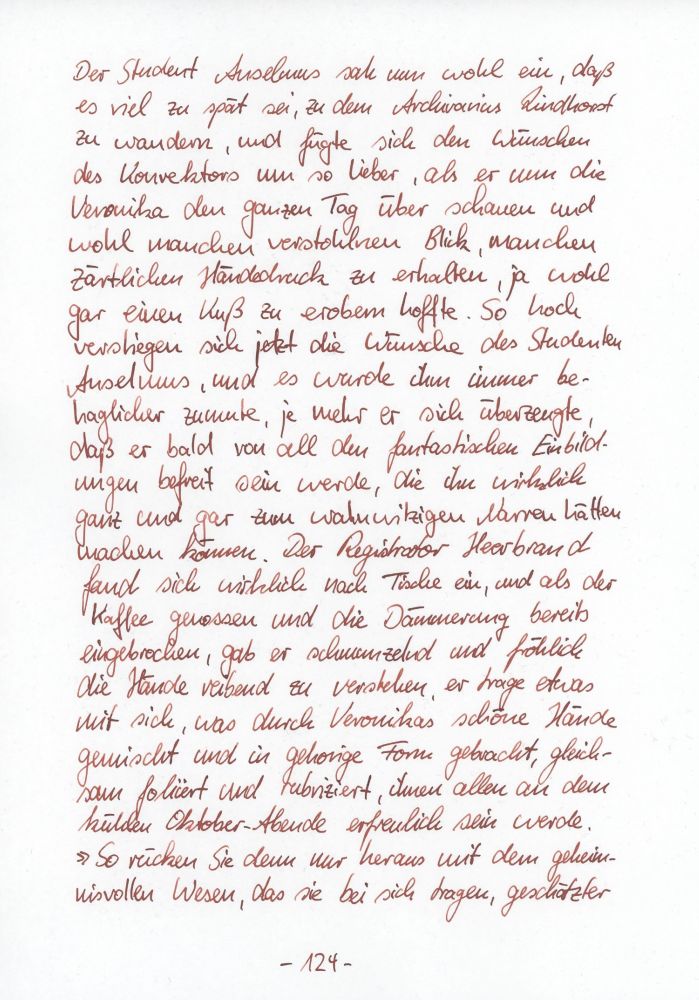 Der Student Anselmus sah nun wohl ein, daß
es viel zu spät sei, zu dem Archivarius Lindhorst
zu wandern, und fügte sich den Wünschen
des Konrektors um so lieber, als er nun die
Veronika den ganzen Tag über schauen und
wohl manchen verstohlnen Blick, manchen
zärtlichen Händedruck zu erhalten, ja wohl
gar einen Kuß zu erobern hoffte. So hoch
verstiegen sich jetzt die Wünsche des Studenten
Anselmus, und es wurde ihm immer be-
haglicher zumute, je mehr er sich überzeugte,
daß er bald von all den fantastischen Einbild-
ungen befreit sein werde, die ihn wirklich
ganz und gar zum wahnwitzigen Narren hätten
machen können. Der Registrator Heerbrand
fand sich wirklich nach Tische ein, und als der
Kaffee genossen und die Dämmerung bereits
eingebrochen, gab er schmunzelnd und fröhlich
die Hände reibend zu verstehen, er trage etwas
mit sich, was durch Veronikas schöne Hände
gemischt und in gehörige Form gebracht, gleich-
sam foliiert und rubriziert, ihnen allen an dem
kühlen Oktober-Abende erfreulich sein werde.
»So rücken Sie denn nur heraus mit dem geheim-
nisvollen Wesen, das sie bei sich tragen, geschätzter
- 124 -